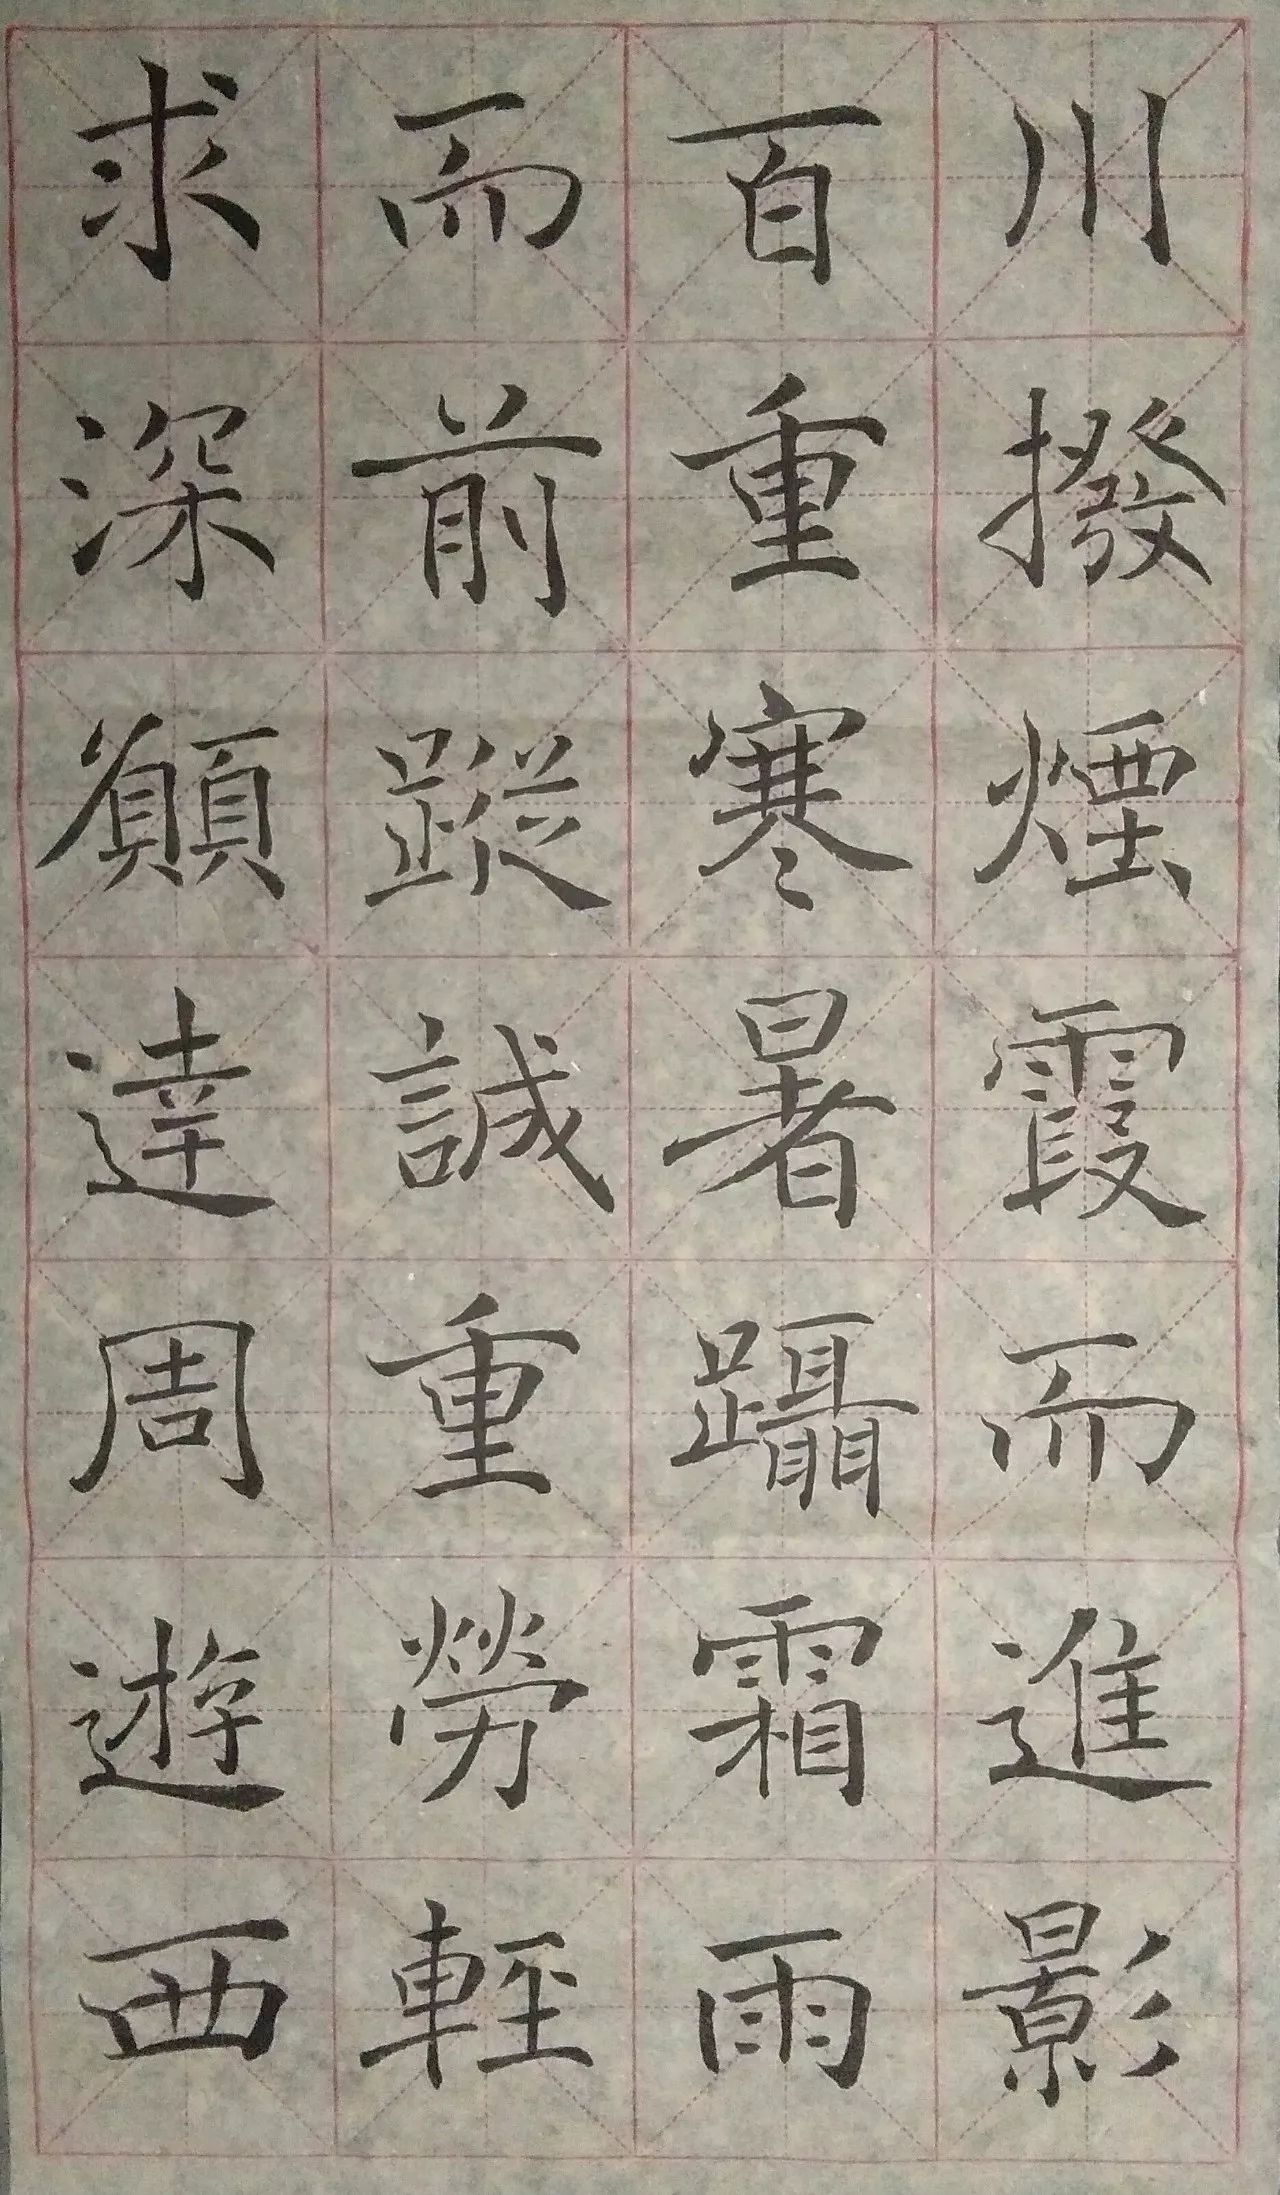 川撥煙霞而進影
百重寒暑躡霜雨
而前蹤誠重勞輕
求深願達周遊西